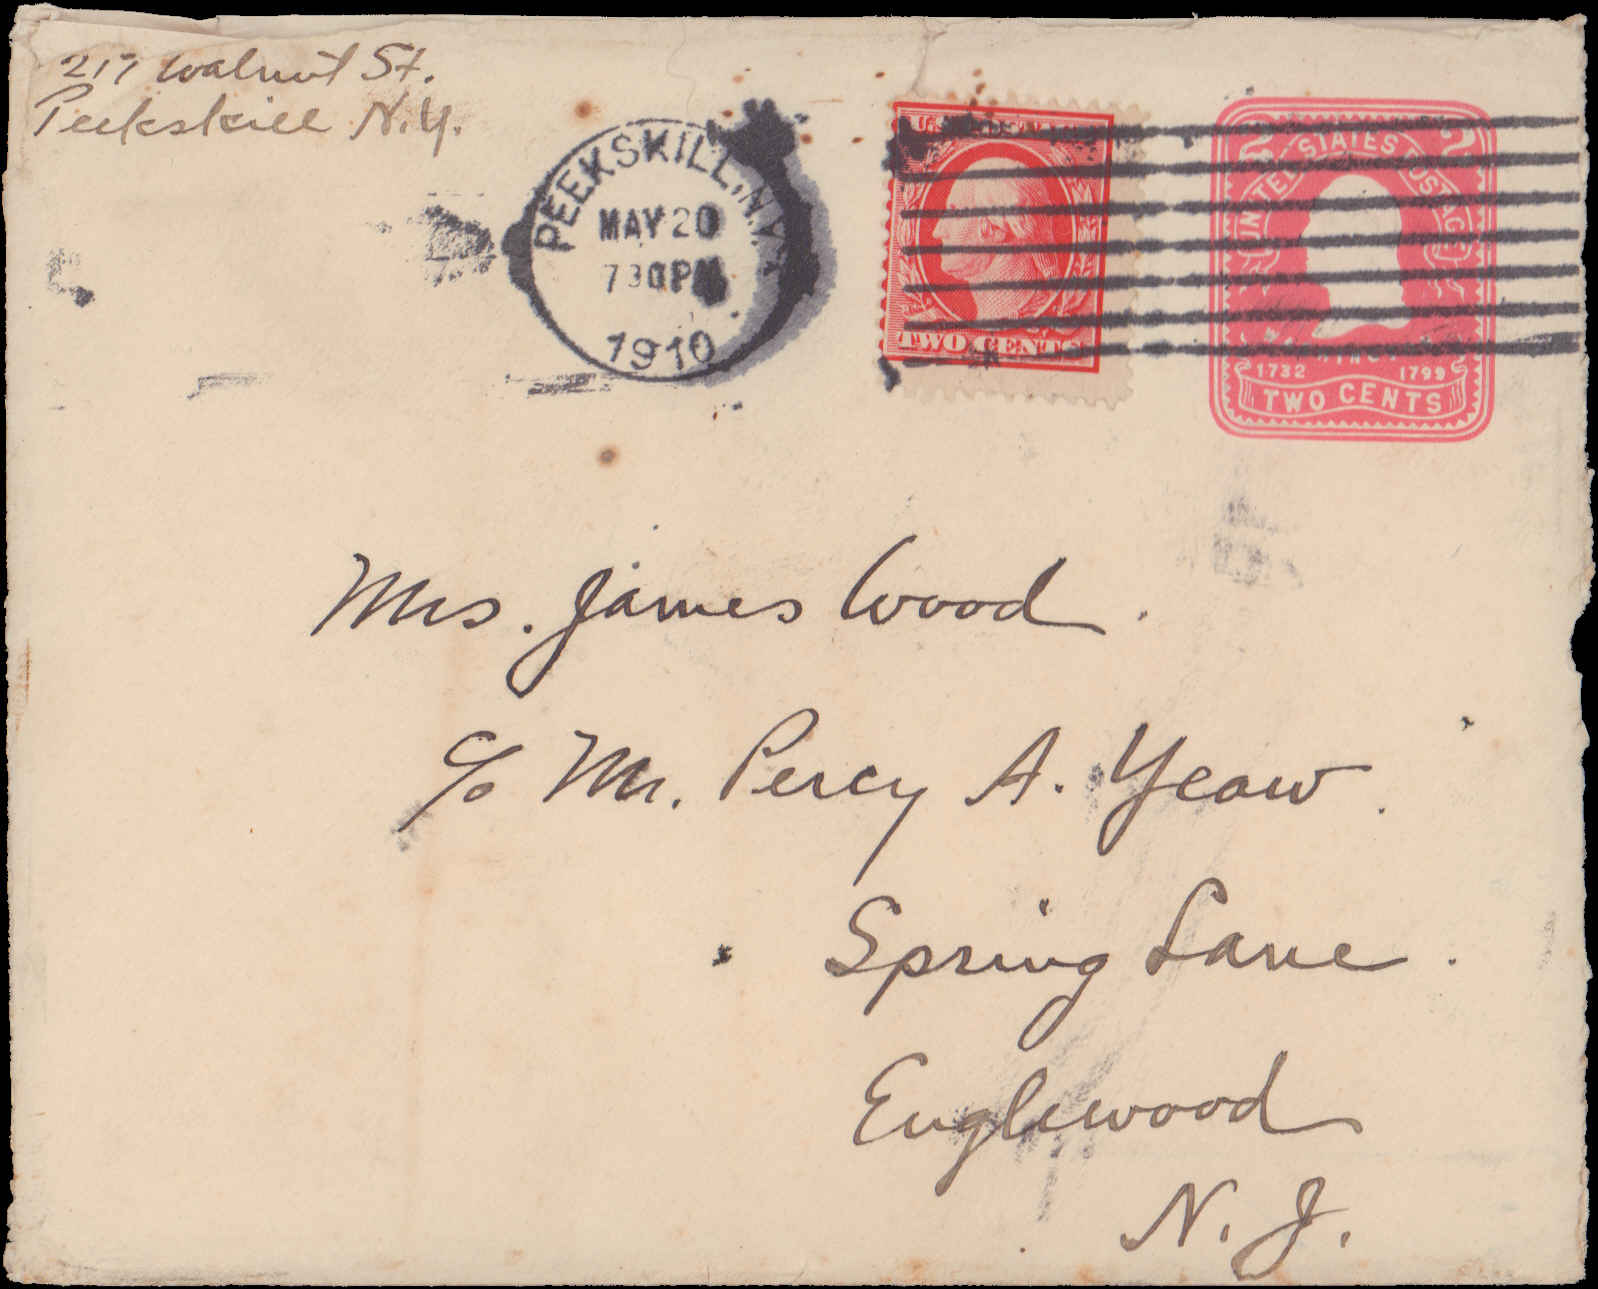 217 Walnut St.
Peekskill N.Y.
PEEKSKILL, N.Y.
MAY 20
7 30 PM
1910
TWO CENTS
2 2
UNITED STATES POSTAGE
WASHINGTON
1732 1799
TWO CENTS
Mrs. James Wood.
c/o Mr. Percy A. Yeaw.
Spring Lane.
Englewood
N. J.